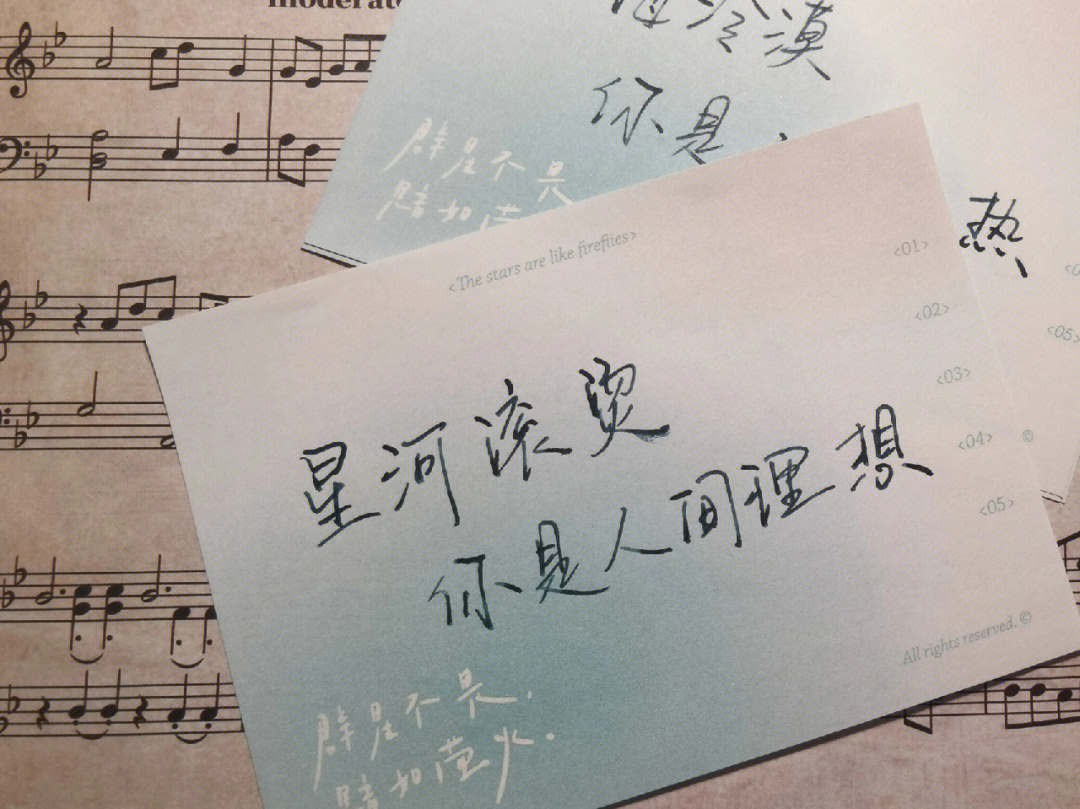 moderat
冷漠
你是
热
星不是
如萤
<The stars are like fireflies>
<01>
<02>
<03>
<04> ©
<05>
星河滚烫
你是人间理想
All rights reserved. ©
星不是.
如萤火.
<05>